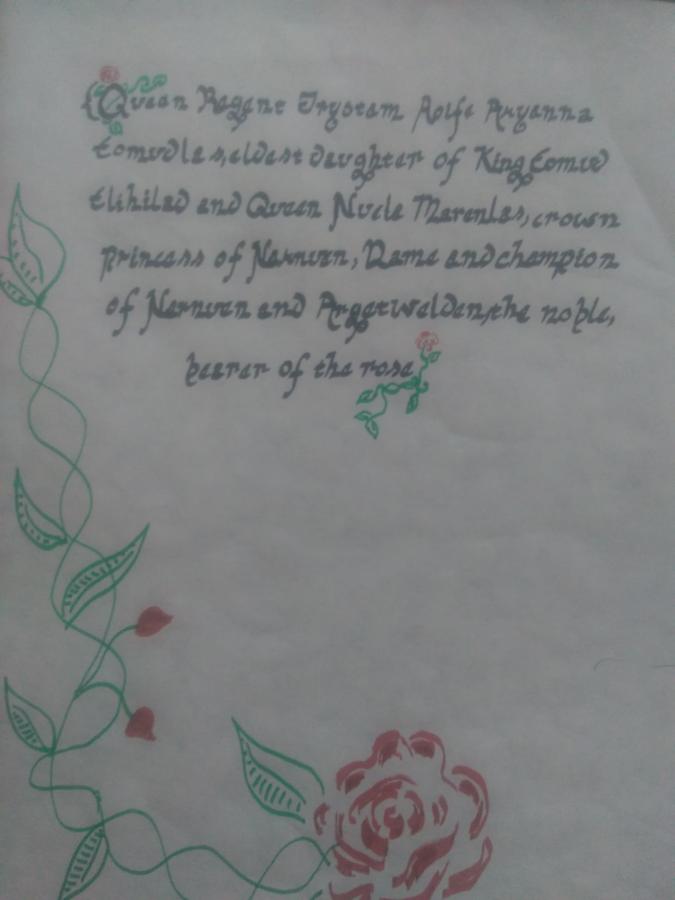 Queen Regent Trystam Aoife Aryanna
Eomudles, eldest daughter of King Eomud
Elihilad and Queen Nucla Marenlas, crown
princess of Narnven, Dame and champion
of Narnven and Argetwelden, the noble,
bearer of the rose